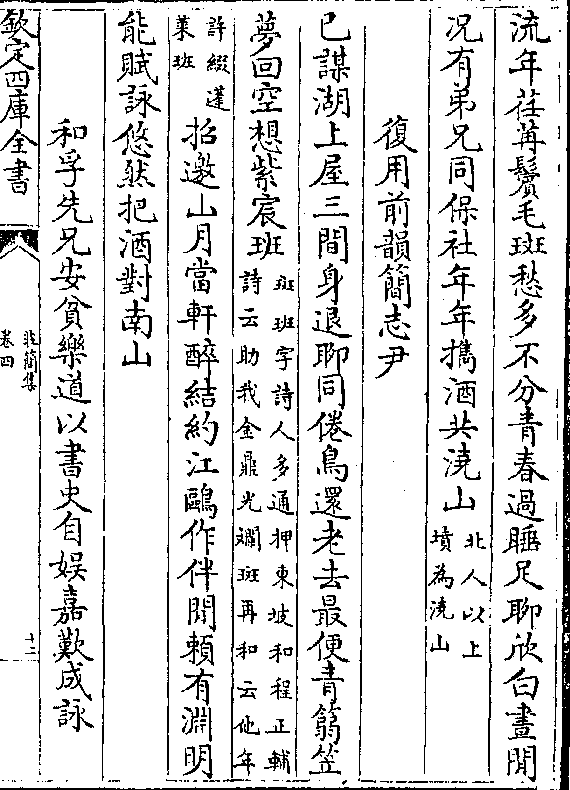 流年荏苒鬢毛斑愁多不分青春過睡足聊欣白晝閒
况有弟兄同保社年年攜酒共澆山北人以上墳為澆山
復用前韻簡志尹
已謀湖上屋三間身退聊同倦鳥還老去最便青篛笠
夢回空想紫宸班斑班字詩人多通押東坡和程正輔詩云助我金鼎光斕斑再和云他年
許綴蓬萊班招邀山月當軒醉結約江鷗作伴閒賴有淵明
能賦詠悠然把酒對南山
和孚先兄安貧樂道以書史自娱嘉歎成詠
欽定四庫全書
卷四
十二